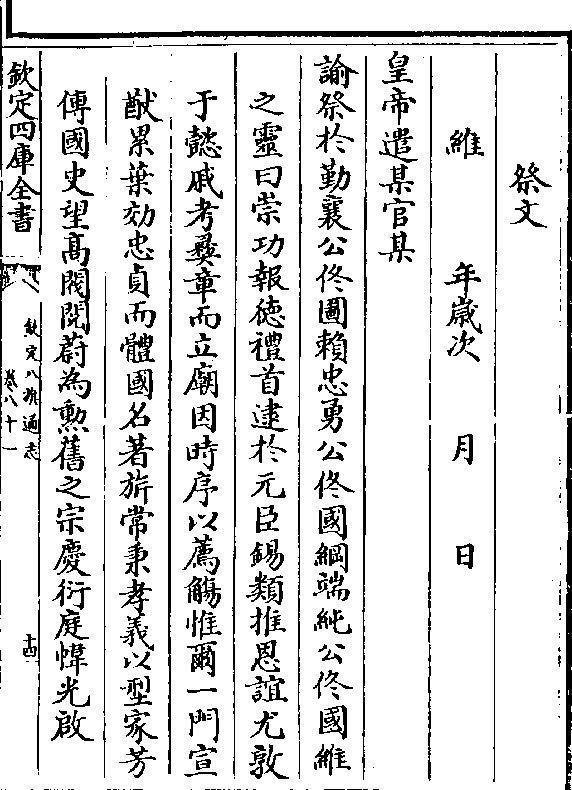 祭文
維　年歲次　月　日
皇帝遣某官某
諭祭於勤襄公佟圖賴忠勇公佟國綱端純公佟國維
之靈曰崇功報徳禮首逮於元臣錫類推恩誼尤敦
于懿戚考彛章而立廟因時序以薦觴惟爾一門宣
猷累葉効忠貞而體國名著旂常秉孝義以型家芳
傳國史望髙閥閱蔚為勲舊之宗慶衍庭幃光啟
欽定四庫全書
欽定八旗通志
卷八十一
十四